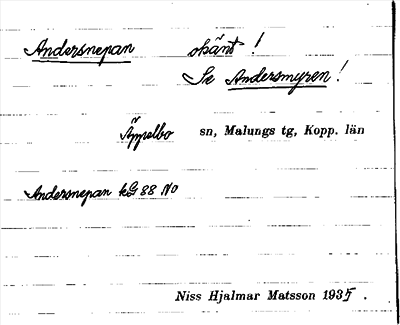 Andersnepan okänt!
Se Andersmyren!
Äppelbo sn, Malungs tg, Kopp. län
Andersnepan kG 88 NO
Niss Hjalmar Matsson 1935.